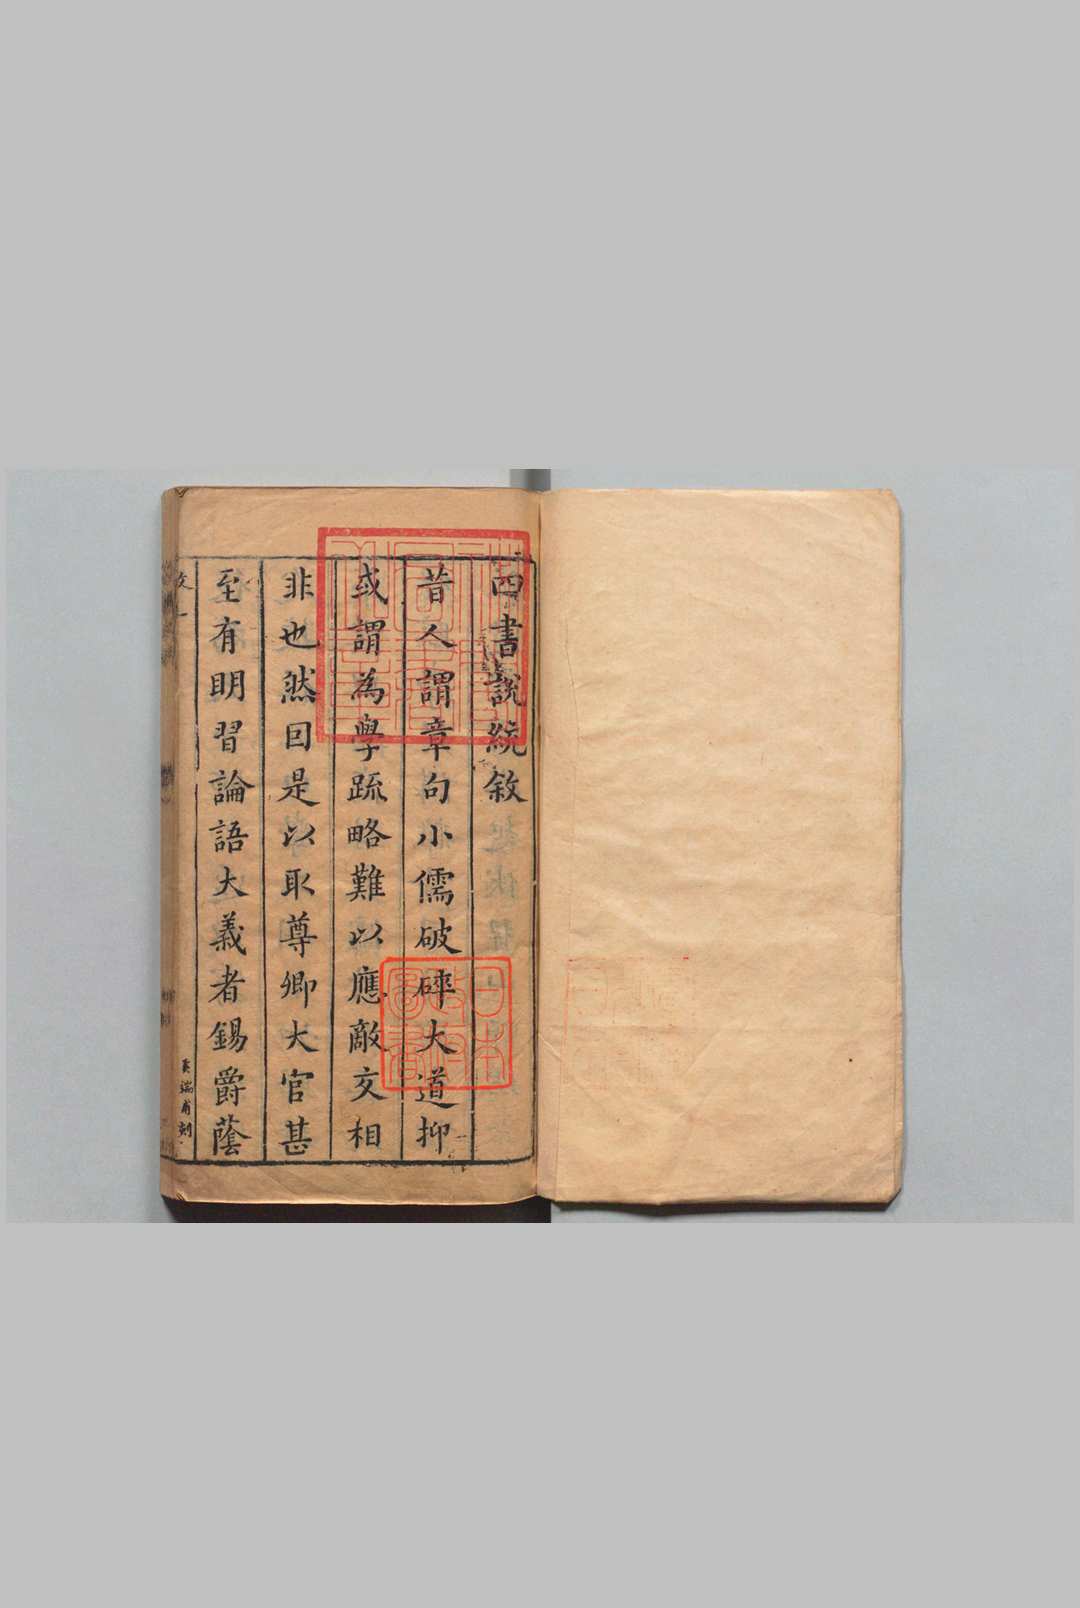 四書說統敘
昔人謂章句小儒破碎大道抑
或謂為學疏略難以應敵文相
非也然回是以取尊卿大官甚
至有明習論語大義者錫爵蔭
日本
政府
圖書